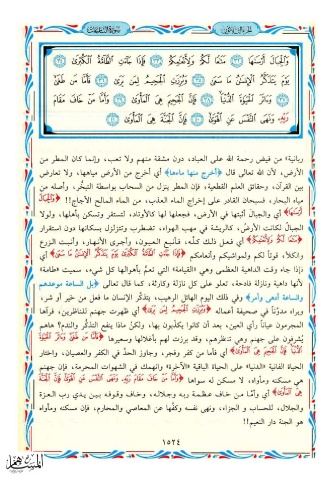 الجزء الثلاثون
سورة النازعات
وَالْجِبَالَ أَرْسَاهَا ﴿٣٢﴾ مَتَاعًا لَّكُمْ وَلِأَنْعَامِكُمْ ﴿٣٣﴾ فَإِذَا جَاءَتِ الطَّامَّةُ الْكُبْرَىٰ ﴿٣٤﴾
يَوْمَ يَتَذَكَّرُ الْإِنسَانُ مَا سَعَىٰ ﴿٣٥﴾ وَبُرِّزَتِ الْجَحِيمُ لِمَن يَرَىٰ ﴿٣٦﴾ فَأَمَّا مَن طَغَىٰ
﴿٣٧﴾ وَآثَرَ الْحَيَاةَ الدُّنْيَا ﴿٣٨﴾ فَإِنَّ الْجَحِيمَ هِيَ الْمَأْوَىٰ ﴿٣٩﴾ وَأَمَّا مَنْ خَافَ مَقَامَ
رَبِّهِ وَنَهَى النَّفْسَ عَنِ الْهَوَىٰ ﴿٤٠﴾ فَإِنَّ الْجَنَّةَ هِيَ الْمَأْوَىٰ ﴿٤١﴾
ربانية» من فيض رحمة الله على العباد، دون مشقة منهم ولا تعب، وإنما كان المطر من
الأرض، لأن الله تعالى قال ﴿أخرج منها ماءها﴾ أي أخرج من الأرض مياهها، ولا تعارض
بين القرآن، وحقائق العلم القطعية، فإن المطر ينزل من السحاب بواسطة التبخُّر، وأصله من
مياه البحار، فسبحان القادر على إخراج الماء العذب، من الماء المالح الأجاج!! ﴿والجبال
أرساها﴾ أي والجبال أثبتها في الأرض، فجعلها لها كالأوتاد، لتستقر وتسكن بأهلها، ولولا
الجبال لكانت الأرضُ، كالريشة في مهب الهواء، تضطرب وتتزلزل بسكانها دون استقرار
﴿متاعا لكم ولأنعامكم﴾ أي فعل ذلك كلَّه، فأنبع العيون، وأجرى الأنهار، وأنبت الزرع
والكلأ، قوتاً لكم ولمواشيكم وأنعامكم ﴿فإذا جاءت الطامة الكبرى﴾ أي
فإذا جاء وقت الداهية العظمى وهي «القيامة» التي تعمُّ بأهوالها كل شيء، سميت «طامة»
لأنها داهية ونازلة فادحة، تعلو على كل نازلة وكارثة، كما قال تعالى ﴿بل الساعة موعدهم
والساعة أدهى وأمر﴾ وفي ذلك اليوم الهائل الرهيب، يتذكَّر الإنسان ما فعل من خير أو شر،
ويراه مدوَّناً في صحيفة أعماله ﴿وبرزت الجحيم لمن يرى﴾ أي ظهرت جهنم للناظرين، فرآها
المجرمون عياناً رأي العين، بعد أن كانوا يكذِّبون بها، ولكنْ ماذا ينفع التذكُّر والندم؟ هاهم
يُشرفون على جهنم وهي تناظرهم، وقد برزت لهم بأغلالها وسعيرها ﴿فأما من طغى وآثر الحياة
الدنيا فإن الجحيم هي المأوى﴾ أي فأما من كفر وفجر، وجاوز الحدَّ في الكفر والعصيان، واختار
الحياة الفانية «الدنيا» على الحياة الباقية «الآخرة» وانهمك في الشهوات المحرمة، فإن جهنم
هي مسكنه ومأواه، لا مسكن له سواها ﴿وأما من خاف مقام ربه ونهى النفس عن الهوى فإن الجنة
هي المأوى﴾ أي وأمَّا من خاف عظمة ربه وجلاله، وخاف وقوفه بين يدي رب العزة
والجلال، للحساب و الجزاء، ونهى نفسه وكفَّها عن المعاصي والمحارم، فإن مسكنه ومأواه
هو الجنة دار النعيم!!
١٥٢٤